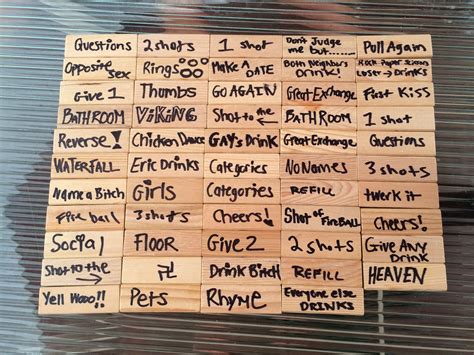 Questions
2 shots
1 shot
Don't Judge
me but.......
Pull Again
Opposite
sex
Rings
Make A
DATE
Both Neighbors
Drink!
Rock Paper Scissors
Loser → Drinks
Give 1
Thumbs
GO AGAIN
Great Exchange
First Kiss
BATHROOM
ViKiNG
Shot to the ←
BATHROOM
1 shot
Reverse!
Chicken Dance
GAY's Drink
Great Exchange
Questions
WATERFALL
Eric Drinks
Categories
No Names
3 shots
Name a Bitch
Girls
Categories
REFILL
twerk it
Fire ball
3 shots
Cheers!
Shot of
FireBALL
Cheers!
Social
FLOOR
Give 2
2 shots
Give Any
Drink
Shot to the →
卐
Drink Bitch
REFILL
HEAVEN
Yell Wooo!!
Pets
Rhyme
Everyone else
DRINKS